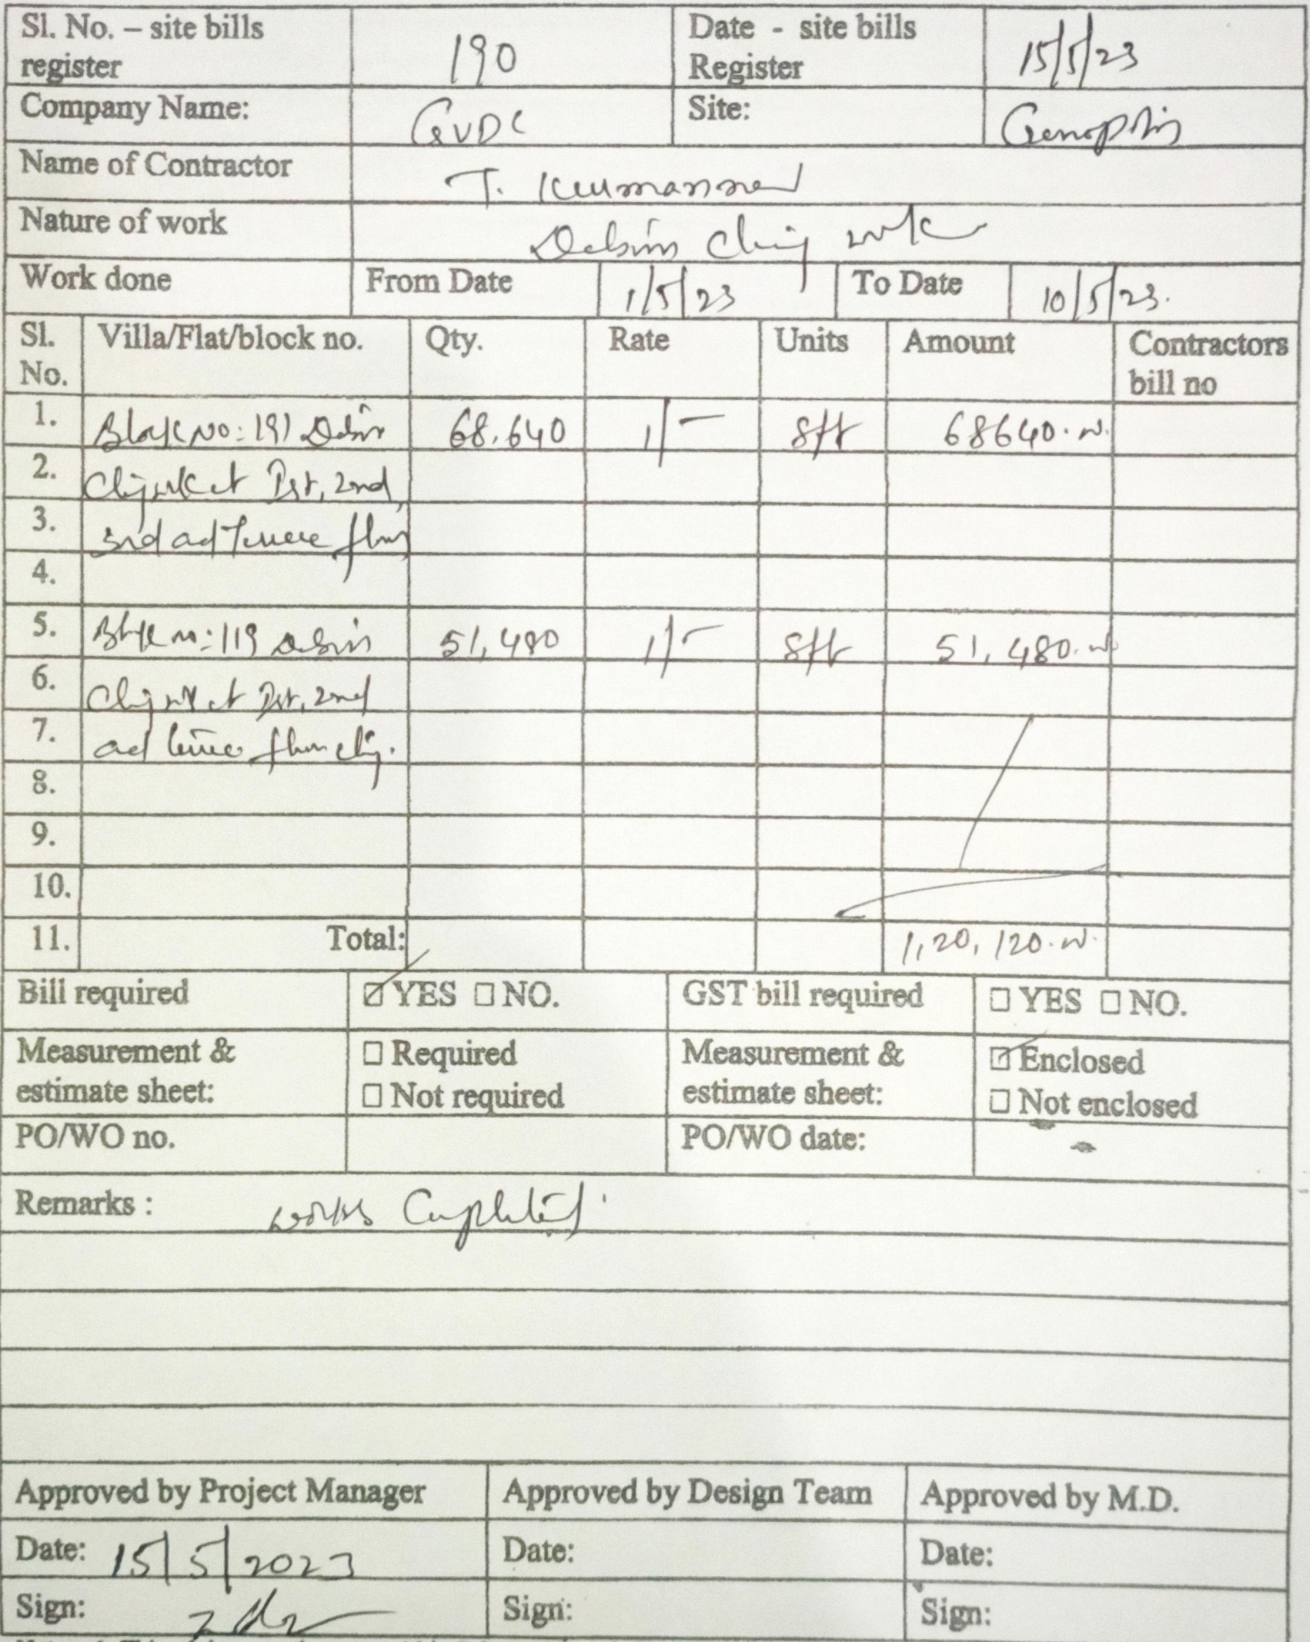 Sl. No. – site bills register 190 Date - site bills Register 15/5/23
Company Name: GVDC Site: Genopolis
Name of Contractor T. Kurmanna
Nature of work Debris work
Work done From Date 1/5/23 To Date 10/5/23.
Sl. No. Villa/Flat/block no. Qty. Rate Units Amount Contractors bill no
1. Block no: 191 Debris 68,640 1/- sft 68640.
2. 1st, 2nd,
3. 3rd ad floor
4.
5. no: 119 debris 51,480 1/- sft 51,480.
6. 1st, 2nd
7. ad
8.
9.
10.
11. Total: 1,20,120.
Bill required ☑ YES ☐ NO. GST bill required ☐ YES ☐ NO.
Measurement & estimate sheet: ☐ Required ☐ Not required Measurement & estimate sheet: ☑ Enclosed ☐ Not enclosed
PO/WO no. PO/WO date:
Remarks : works Completed
Approved by Project Manager Approved by Design Team Approved by M.D.
Date: 15/5/2023 Date: Date:
Sign: Sign: Sign: